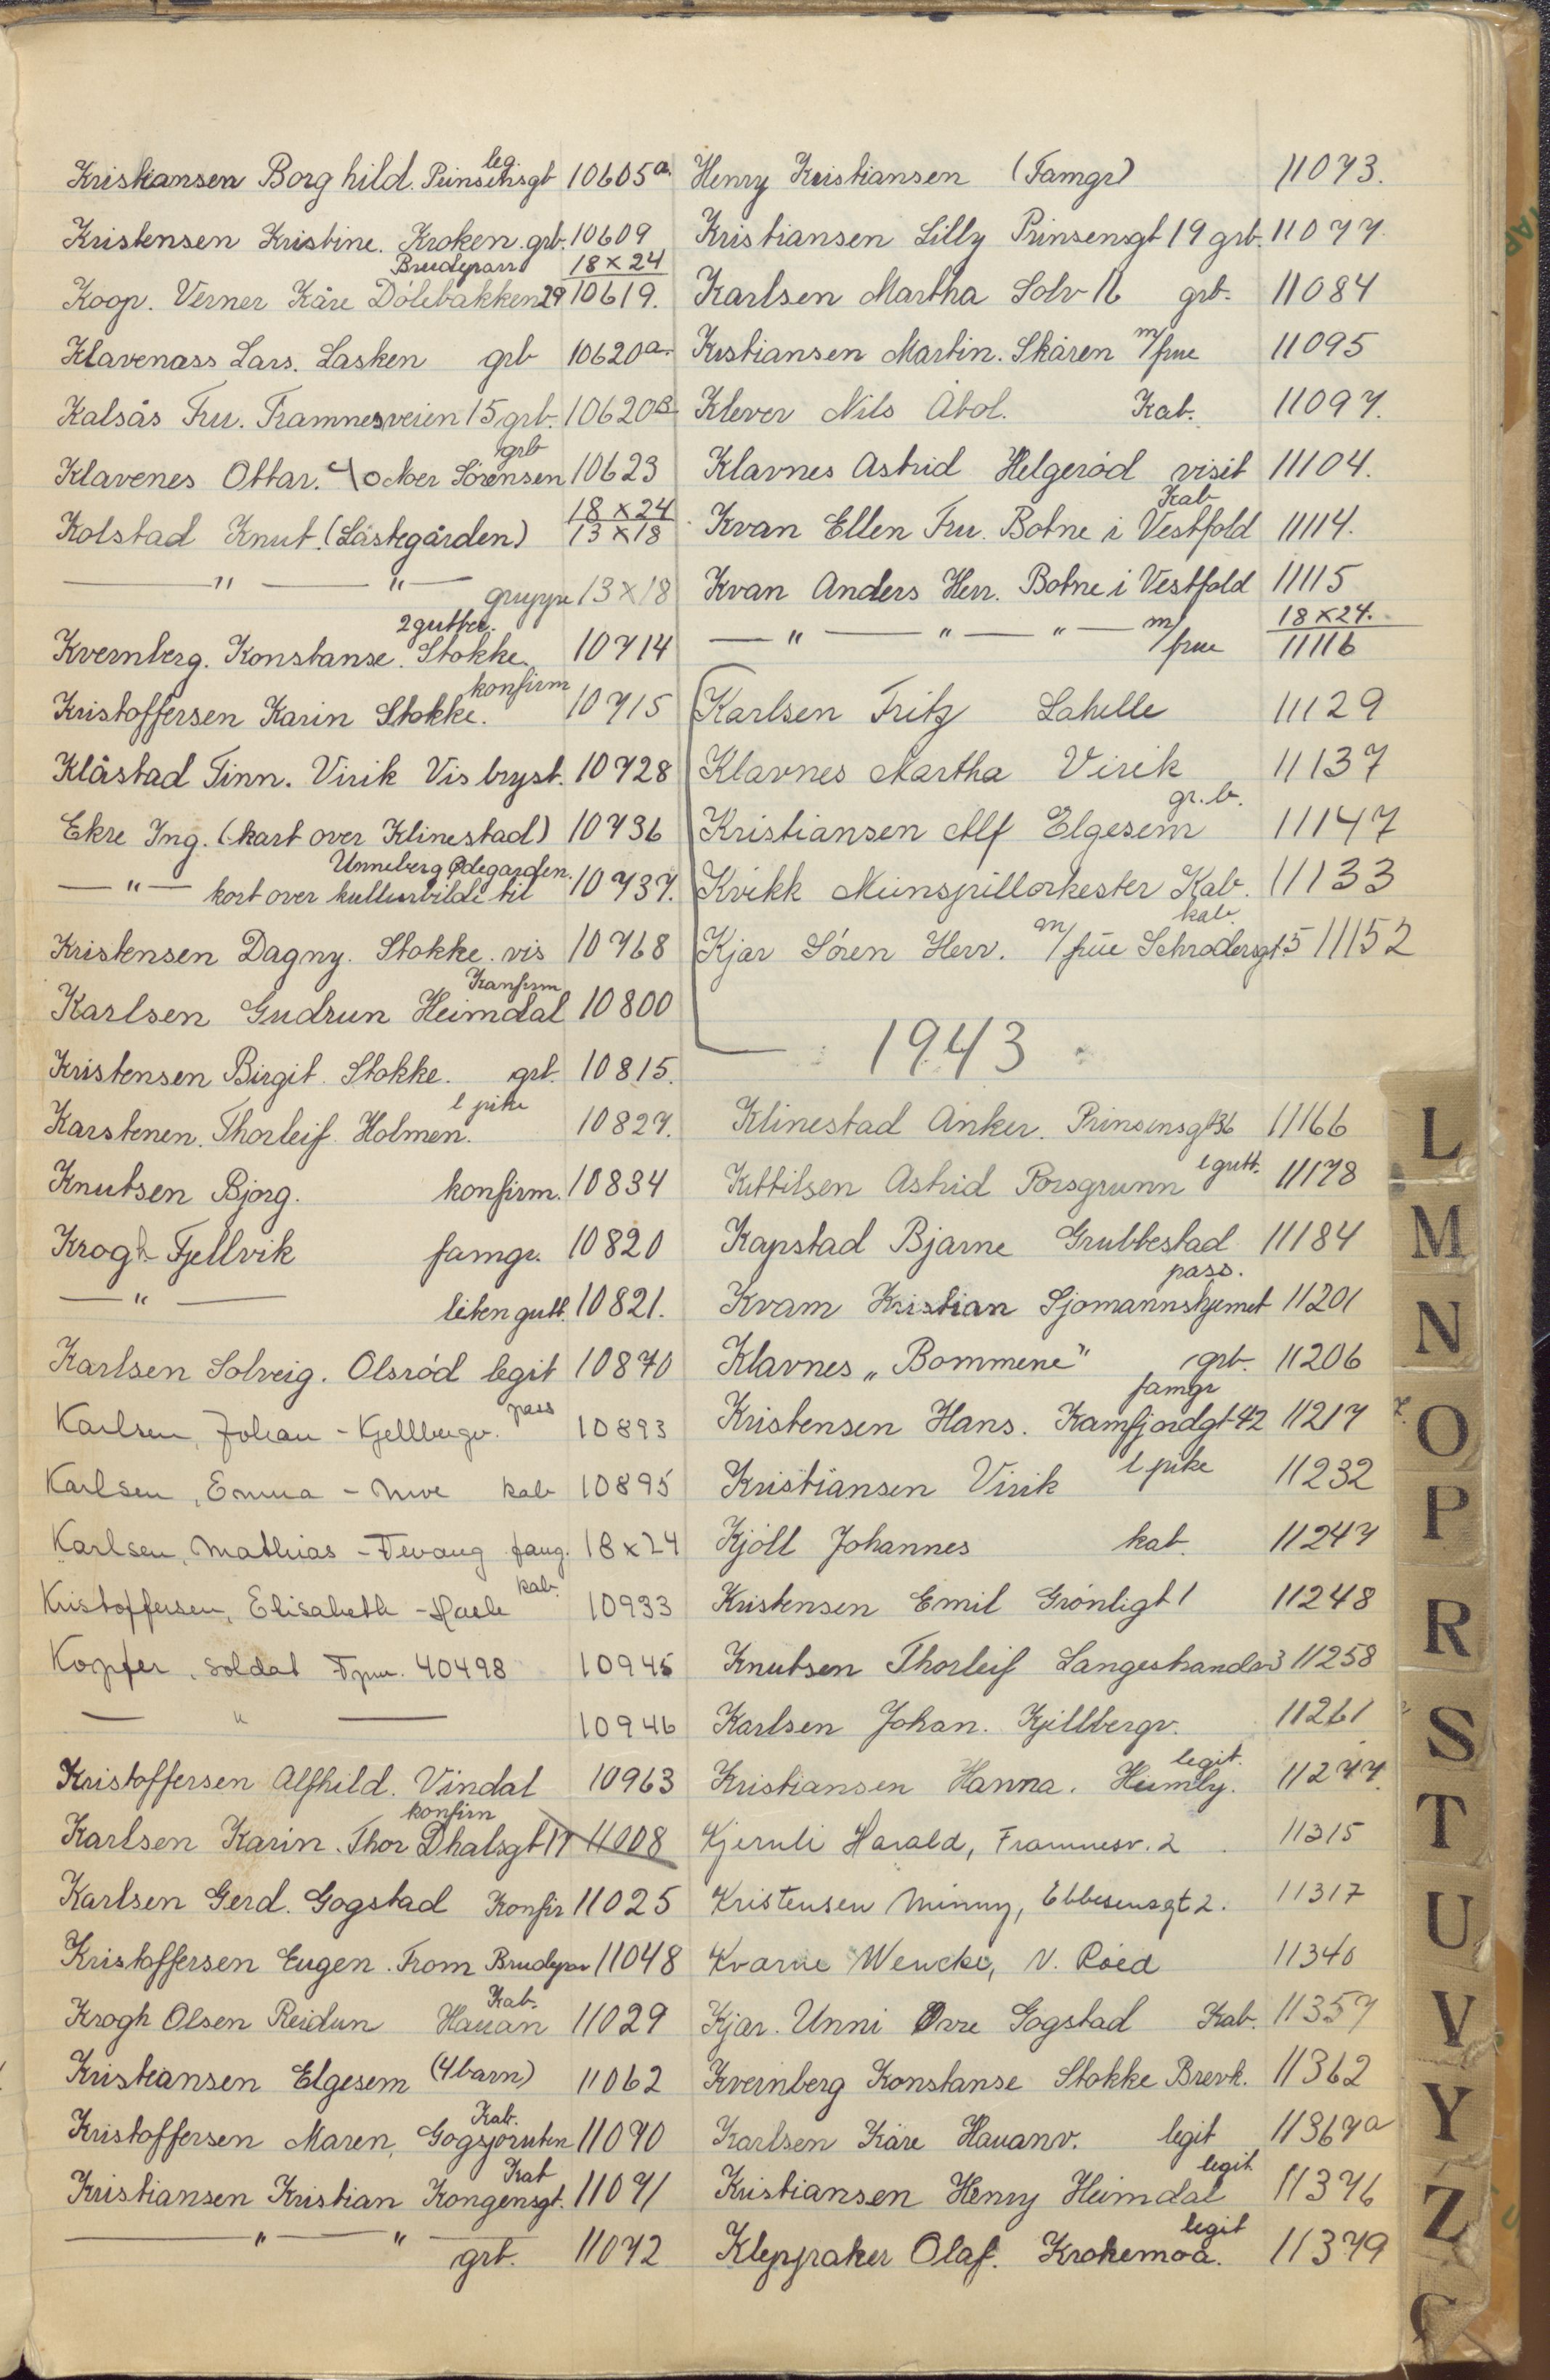 Kristiansen Borghild. Prinsensgt leg. 10605a.
Kristensen Kristine. Kroken. grb. 10609
Brudepar 18x24
Koop. Verner Kåre Dølebakken 29 10619.
Klavenass Lars. Lasken grb 10620a.
Kalsås Fru. Framnesveien 15 grb. 10620B
Klavenes Ottar. Sørensen grb 10623
Kolstad Knut. (Låstegården) 18x24 13x18
—"—"— gruppe 13x18
Kvernberg. Konstanse. Stokke. 2 gutter. 10714
Kristoffersen Karin Stokke. konfirm 10715
Klåstad Finn. Virik Vis bryst. 10728
Ekre Ing. (kart over Klinestad) 10736
—"— kort over kulturbilde til Unneberg Ødegarden. 10737.
Kristensen Dagny. Stokke. vis 10768
Karlsen Gudrun Heimdal Konfirm 10800
Kristensen Birgit. Stokke. grb. 10815.
Karstenen. Thorleif Holmen. l pike 10827.
Knutsen Bjorg. konfirm. 10834
Krogh Fjellvik famgr. 10820
—"— liten gutt. 10821.
Karlsen Solveig. Olsrød legit 10870
Karlsen, Johan - Kjellbergv. pass 10893
Karlsen, Emma - Moe kab 10895
Karlsen, Mathias - Tevang 18x24
Kristoffersen, Elisabeth - kab. 10933
Kopfer, soldat Fpnr. 40498 10945
—"— 10946
Kristoffersen Alfhild. Vindal 10963
Karlsen Karin. Thor Dhalsgt 17 konfirm 11008
Karlsen Gerd. Gogstad Konfir 11025
Kristoffersen Eugen. From Brudepar 11048
Krogh Olsen Reidun Hauan Kab. 11029
Kristiansen Elgesem (4 barn) 11062
Kristoffersen Maren, Gogsjøruten Kab. 11070
Kristiansen Kristian Kongensgt. Kab 11071
—"—"— grb. 11072
Henry Kristiansen (Famgr) 11073.
Kristiansen Lilly Prinsensgt 19 grb. 11077.
Karlsen Martha Solv 16 grb. 11084
Kristiansen Martin. Skåren m/frue 11095
Klever Nils Åbol. Kab. 11097.
Klavnes Astrid Helgerød visit 11104.
Kvan Ellen Fru. Botne i Vestfold Kab 11114.
Kvan Anders Herr. Botne i Vestfold 11115
—"—"—"— m/frue 18x24. 11116
Karlsen Fritz Lahelle 11129
Klavnes Martha Virik 11137
Kristiansen Alf Elgesem gr.b. 11147
Kvikk Munspillorkester Kab. 11133
Kjær Søren Herr. m/frue Schrodersgt. 5 kab. 11152
1943
Klinestad Anker. Prinsensgt 36 11166
Kittilsen Astrid Porsgrunn l gutt. 11178
Kapstad Bjarne Grubbestad 11184
Kvam Kristian Sjømannshjemet pass. 11201
Klavnes „Bommene" grb. 11206
Kristensen Hans. Kamfjordgt 42 famgr 11217
Kristiansen Virik l pike 11232
Kjøll Johannes kab. 11247
Kristensen Emil Grønligt 1 11248
Knutsen Thorleif Langestranda 3 11258
Karlsen Johan. Kjellbergv. 11261
Kristiansen Hanna. Humby. legit. 11277.
Kjernli Harald, Framnesv. 2 11315
Kristensen Minny, Ebbesensgt 2. 11317
Kvarne Wencke, N. Råed 11340
Kjær. Unni Øvre Gogstad Kab. 11357
Kvernberg Konstanse Stokke Brevk. 11362
Karlsen Kåre Hauanv. legit 11367a
Kristiansen Henry Heimdal legit 11376
Klepraker Olaf. Krokemoa. legit 11379
L
M
N
O
P
R
S
T
U
V
Y
Z